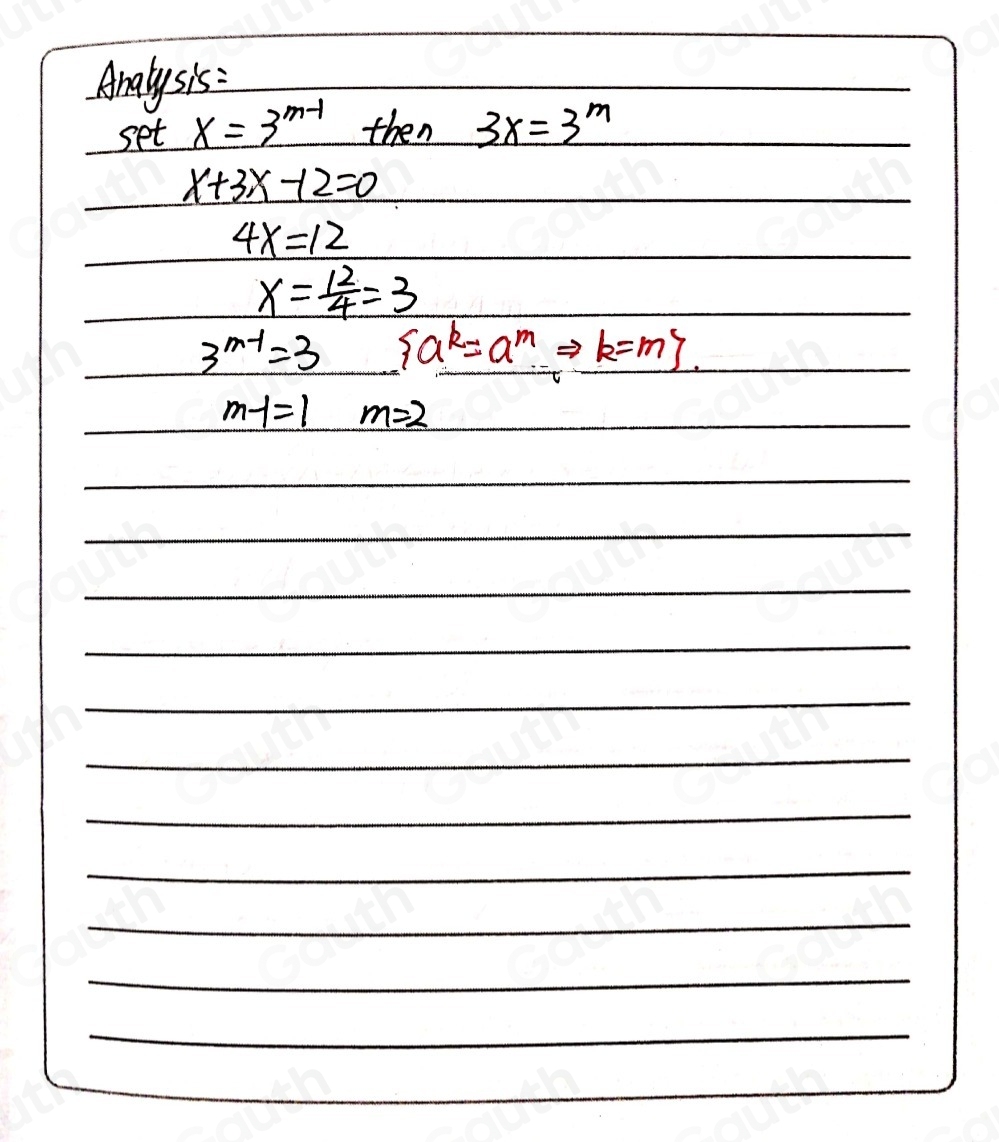 Analysis:
set x = 3^{m-1} then 3x = 3^m
x+3x-12=0
4x=12
x = \frac{12}{4} = 3
3^{m-1}=3 {a^k=a^m ⇒ k=m}.
m-1=1 m=2